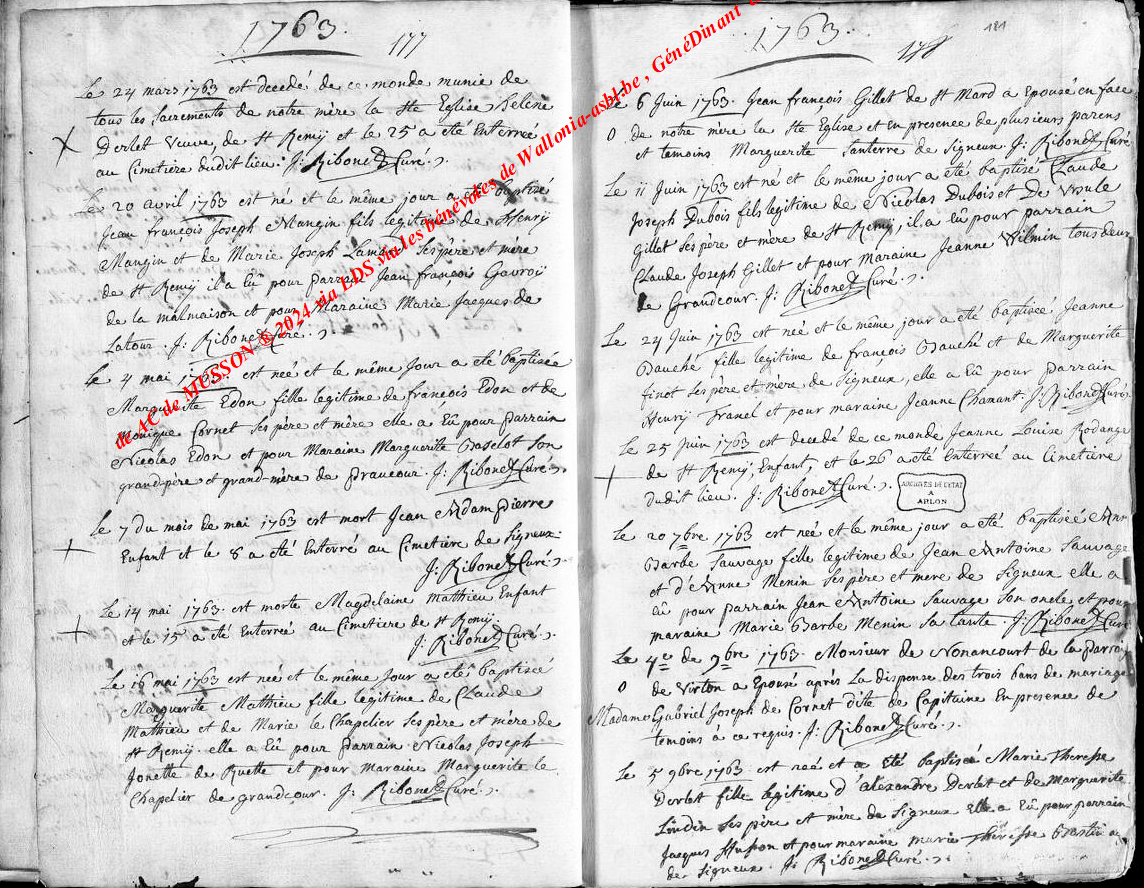 1763.
177
Le 24 mars 1763 est decedé de ce monde munie de
tous les sacrements de notre mère la Ste Eglise Selene
Derlet Veuve, de St Remij et le 25 a été Enterrée
au Cimetiere dudit lieu. J: Ribonet Curé.
Le 20 avril 1763 est né et le même jour a été baptisé
Jean françois Joseph Mangin fils legitime de Henrij
Mangin et de Marie Joseph Lambert ses père et mere
de St Remij il a Eû pour parrain Jean françois Gavroij
de la malmaison et pour Maraine Marie Jacques de
Latour. J: Ribonet Curé.
Le 4 mai 1763. est née et le même Jour a été baptisée
Marguerite Edon fille legitime de françois Edon et de
Monique Cornet ses père et mère elle a Eû pour parrain
Nicolas Edon et pour Maraine Marguerite Baselot son
grand-père et grand-mère de . J: Ribonet Curé.
Le 7 du mois de mai 1763 est mort Jean Adam pierre
Enfant et le 8 a été Enterré au Cimetière de Signeux.
J: Ribonet Curé.
Le 14 mai 1763. est morte Magdelaine Mathieu Enfant
et le 15 a été Enterrée au Cimetiere de St Remij
J: Ribonet Curé.
Le 16 mai 1763 est née et le même Jour a été baptiseé
Marguerite Mathieu fille legitime de Claude
Mathieu et de Marie le Chapelier ses père et mère de
St Remij. elle a Eû pour parrain Nicolas Joseph
Jonette de Ruette et pour maraine Marguerite le
Chapelier de grandcour. J: Ribonet Curé.
1763.
178
181
Le 6 Juin 1763. Jean françois Gillet de St Mard a Epousé en face
de notre mère la Ste Eglise et En presence de plusieurs parens
et temoins Marguerite Santerre de Signeux J: Ribonet Curé
Le 11 Juin 1763 est né et le même jour a été baptisé Claude
Joseph Dubois fils legitime de Nicolas Dubois et De Ursule
Gillet ses père et mère de St Remij, il a Eû pour parrain
Claude Joseph Gillet et pour maraine Jeanne Wilmin tous deux
de Grandcour. J: Ribonet Curé.
Le 24 Juin 1763 est née et le même jour a été baptisée Jeanne
Bauché fille legitime de françois Bauché et de Marguerite
finot ses père et mère de Signeux, elle a Eû pour parrain
Henrij et pour maraine Jeanne Chamant J: Ribonet Curé.
Le 25 Juin 1763 est decedé de ce monde Jeanne Louise Rodange
de St Remij, Enfant, et le 26 a été Enterreé au Cimetière
dudit lieu. J: Ribonet Curé.
ARCHIVES DE L'ETAT
A
ARLON
Le 20 7bre 1763 est née et le même jour a été baptiseé Ann
Barbe Sauvage fille legitime de Jean Antoine Sauvage
et d'Anne Menin ses père et mere de Signeux elle a
eû pour parrain Jean Antoine Sauvage son oncle et pour
maraine Marie Barbe Menin sa tante. J: Ribonet Curé
Le 4e de 9bre 1763. Monsieur de Nonancourt de la parroi
de Virton a Epousé après La dispense des trois bans de mariage
Madame Gabriel Joseph de Cornet dite de Capitaine En presence de
temoins à ce requis. J: Ribonet Curé.
Le 5 9bre 1763 est neé et a été baptiseé Marie Theresse
Derlet fille legitime d'alexandre Derlet et de Marguerite
Loudin ses père et mère de Signeux Elle a Eû pour parrain
Jacques Husson et pour maraine marie Theresse
de Signeux. J: Ribonet Curé.
de AC de MUSSON © 2024 via EDS via les bénévoles de Wallonia-asbl.be , GénéDinant